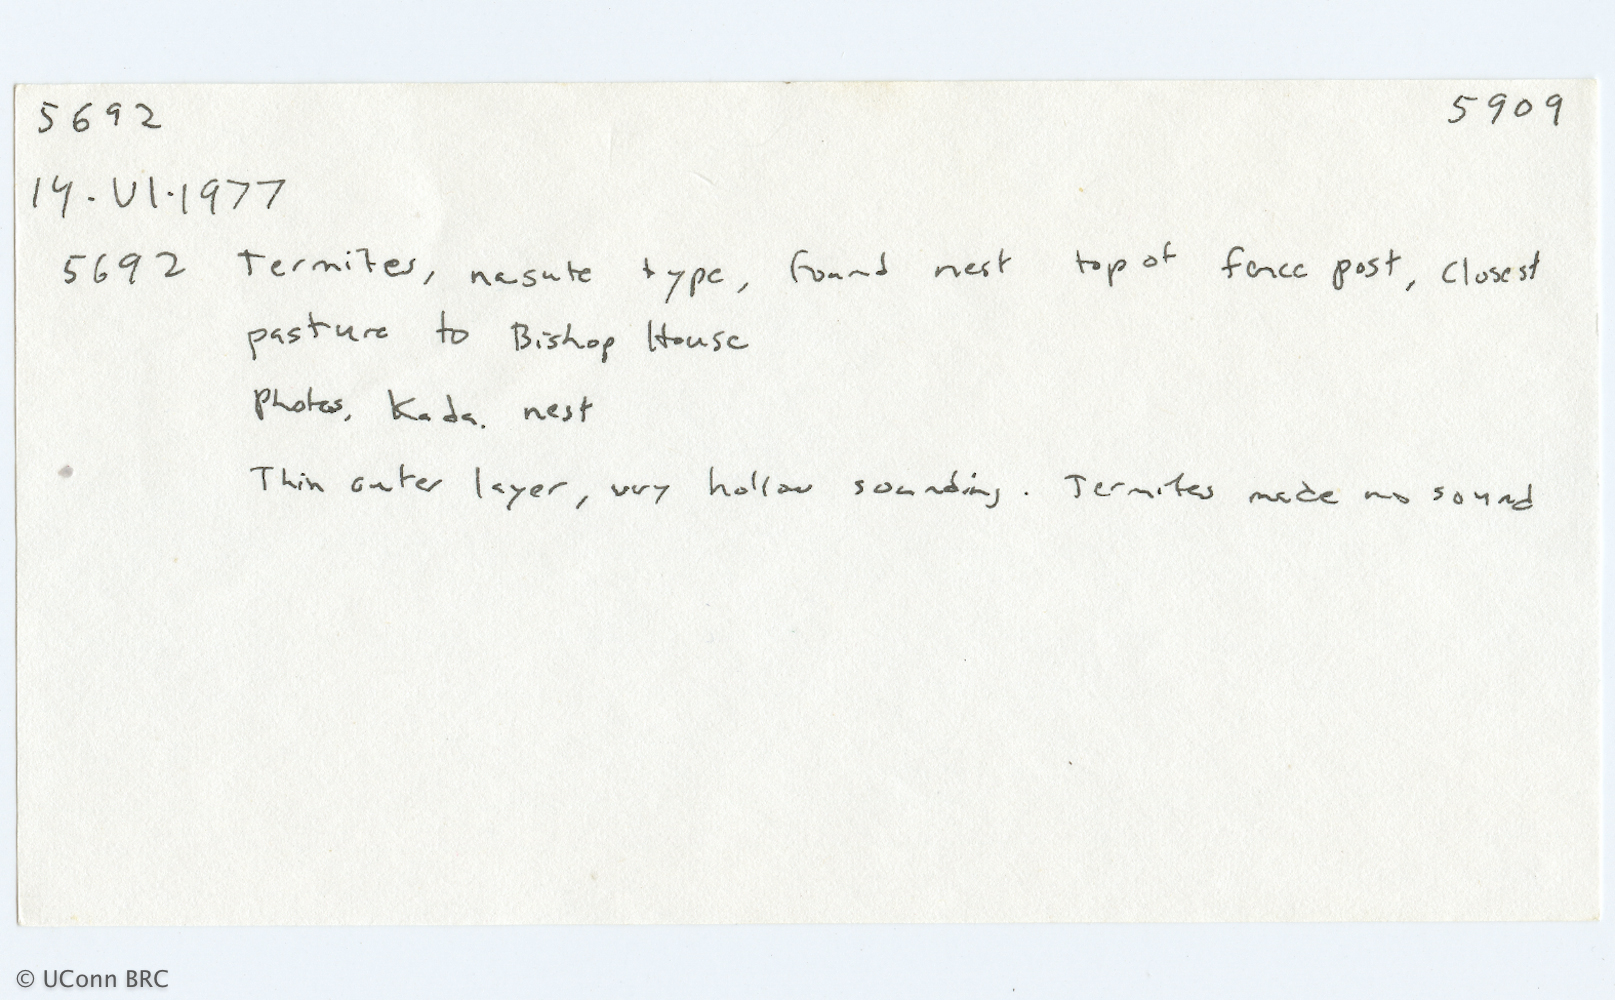 5692 5909
14.VI.1977
5692 Termites, nasute type, found nest top of fence post, closest
pasture to Bishop House
Photos, Koda. nest
Thin outer layer, very hollow sounding. Termites made no sound
© UConn BRC